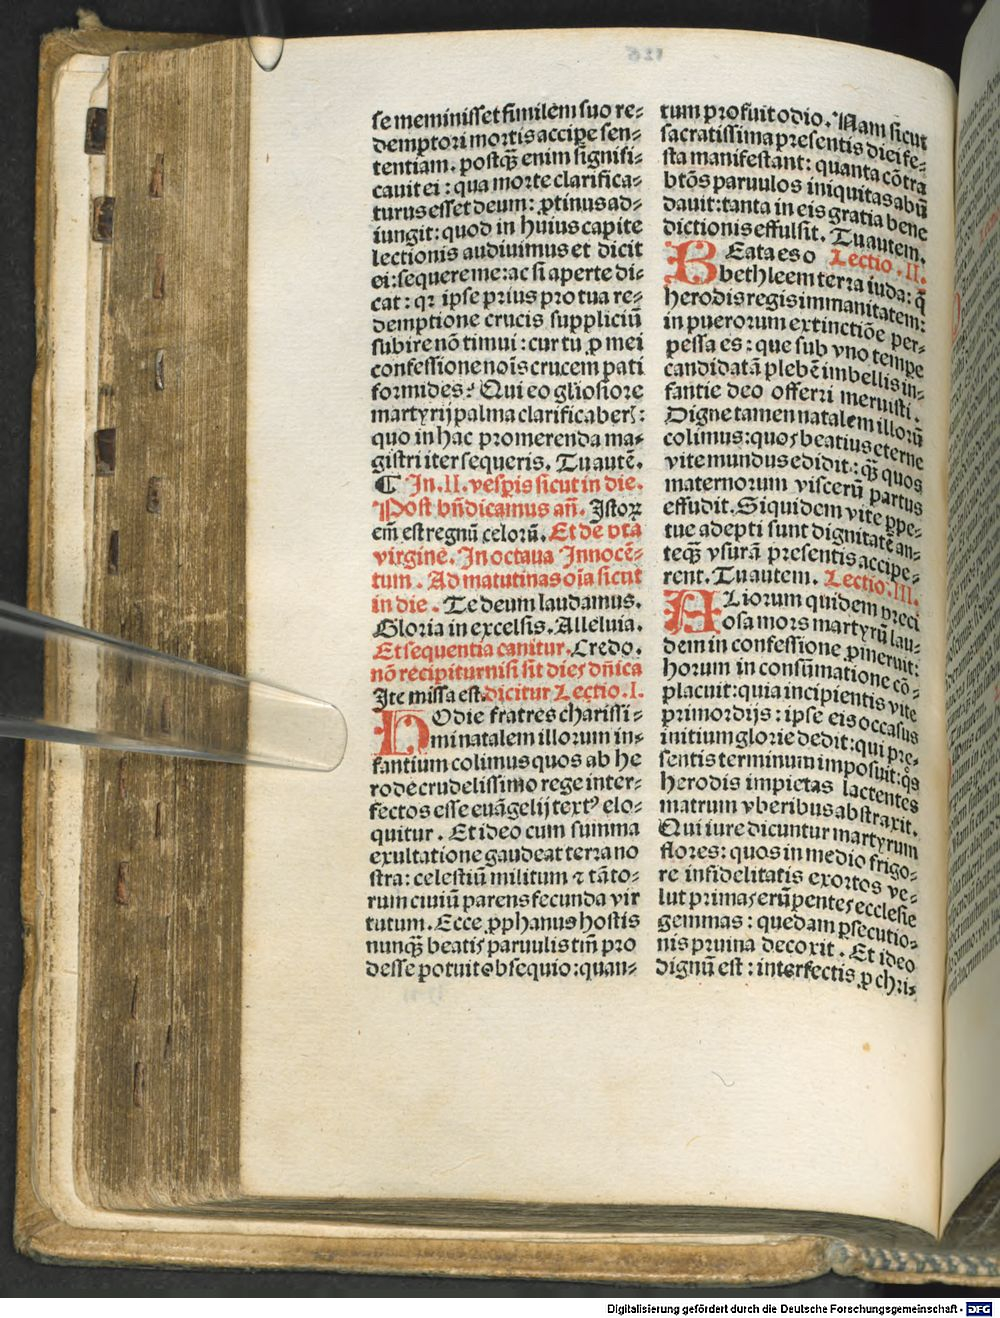 se meminisset similem suo re-
demptori mortis accipe sen-
tentiam. postqȝ enim signifi-
cauit ei : qua morte clarifica-
turus esset deum: ꝓtinus ad-
iungit: quod in huius capite
lectionis audiuimus et dicit
ei: sequere me: ac si aperte di-
cat : qꝛ ipse prius pro tua re-
demptione crucis suppliciū
subire nō timui : cur tu ꝓ mei
confessione noīs crucem pati
formides? Qui eo gliosiore
martyrij palma clarificaberꝭ :
quo in hac promerenda ma-
gistri iter sequeris. Tu autē.
¶ In .II. vesꝑis sicut in die.
Post bn̄dicamus an̄. Istoꝝ
em̄ est regnū celorū. Et de vna
virgine. In octaua Innocē-
tum . Ad matutinas oīa sicut
in die . Te deum laudamus.
Gloria in excelsis. Alleluia.
Et sequentia canitur. Credo.
nō recipitur nisi sit dies dn̄ica
Ite missa est. dicitur Lectio .I.
HOdie fratres charissi-
mi natalem illorum in-
fantium colimus quos ab he
rode crudelissimo rege inter-
fectos esse euāgelij textꝰ elo-
quitur . Et ideo cum summa
exultatione gaudeat terra no
stra: celestiū militum ⁊ tāto-
rum ciuiū parens fecunda vir
tutum . Ecce ꝓphanus hostis
nunqȝ beatis paruulis tm̄ pro
desse potuit obsequio: quan-
tum profuit odio. Nam sicut
sacratissima presentis diei fe-
sta manifestant: quanta cōtra
btōs paruulos iniquitas abū
dauit: tanta in eis gratia bene
dictionis effulsit. Tu autem.
BEata es o Lectio .II.
bethleem terra iuda: q̄
herodis regis immanitatem:
in puerorum extinctiōe per-
pessa es : que sub vno tempe
candidatā plebē imbellis in-
fantie deo offerri meruisti .
Digne tamen natalem illorū
colimus: quos beatius eterne
vite mundus edidit : qȝ quos
maternorum viscerū partus
effudit. Siquidem vite ꝑpe-
tue adepti sunt dignitatē an-
teqȝ vsurā presentis accipe-
rent. Tu autem. Lectio .III.
ALiorum quidem preci
osa mors martyrū lau-
dem in confessione ꝓmeruit:
horum in consūmatione cō-
placuit: quia incipientis vite
primordijs : ipse eis occasus
initium glorie dedit: qui pre-
sentis terminum imposuit: qͦs
herodis impietas lactentes
matrum vberibus abstraxit.
Qui iure dicuntur martyrum
flores: quos in medio frigo-
re infidelitatis exortos ve-
lut primas erūpentes ecclesie
gemmas : quedam ꝑsecutio-
nis pruina decoxit . Et ideo
dignū est : interfectis ꝓ chri-
Digitalisierung gefördert durch die Deutsche Forschungsgemeinschaft - DFG